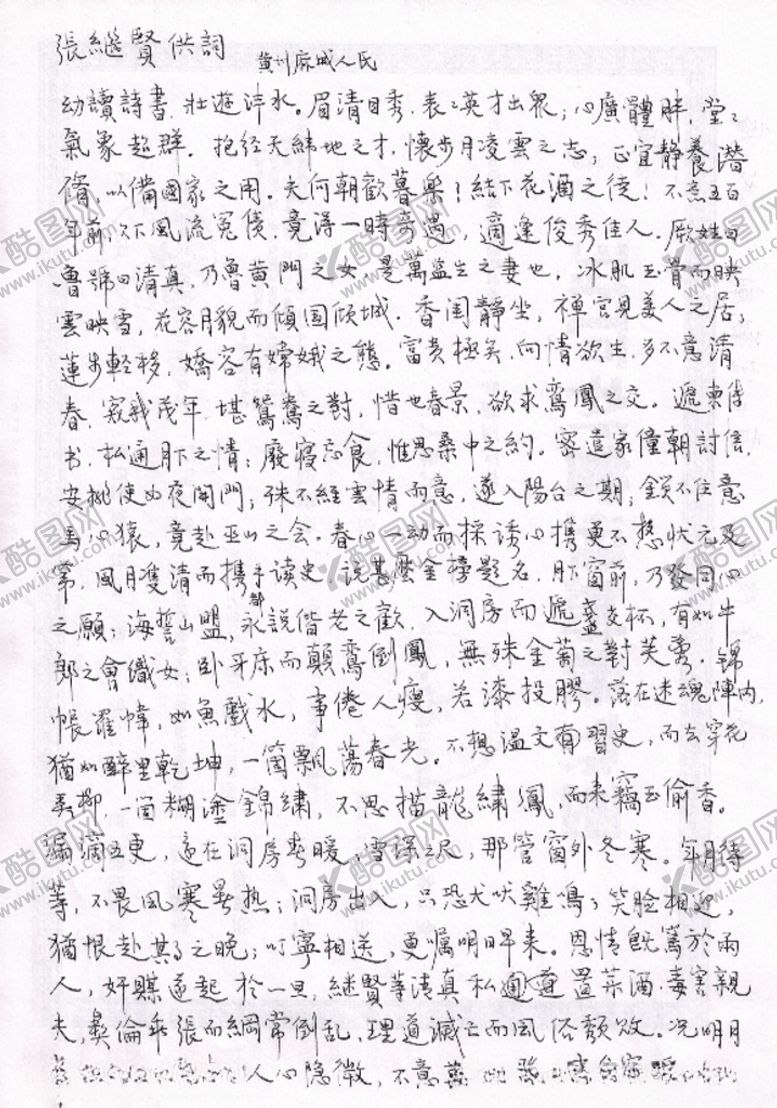 張繼賢供詞
黄州麻城人民
幼讀詩書,壯遊泮水。眉清目秀,表〻英才出眾;心廣體胖,堂〻
氣象超群。抱经天緯地之才,懷步月凌雲之志,正宜靜養潛
脩,以備國家之用。夫何朝歡暮樂!結下花酒之徒!不意五百
年前,欠下風流冤债,竟得一時奇遇,適逢俊秀佳人。厥姓曰
魯號曰清真,乃魯黄門之女,是萬监生之妻也,冰肌玉骨而映
雲映雪,花容月貌而傾国倾城。香闺靜坐,禅宫見美人之居;
蓮步輕移,嬌容有嫦娥之態。富貴極矣,向情欲生,多不意清
春,窺我茂年,堪鴛鴦之對,惜也春景,欲求鸾鳳之交。遞柬傳
书,私通月下之情;廢寝忘食,惟思桑中之約。密遣家僮朝討信,
安排使女夜開門;殊不經雲情雨意,遂入陽台之期;鎖不住意
馬心猿,竟赴巫山之会。春心一动而採誘心携更不想状元及
第,風月雙清而携手读史,説甚麽金榜题名,月下窗前,乃發同心
之願;海誓山盟,都永説偕老之歡,入洞房而遞盏交杯,有如牛
郎之會織女;卧牙床而顛鸾倒鳳,無殊金菊之對芙蓉,錦
帳羅幃,如魚戲水,事倦人瘦,若漆投膠。落在迷魂陣内,
猶如醉里乾坤,一箇飄荡春光。不想温文習史,而去穿花
弄柳,一箇糊塗錦繡,不思描龍繡鳳,而来竊玉偷香。
漏滴五更,還在洞房春暖,雪深三尺,那管窗外冬寒。年月待
等,不畏風寒暑热;洞房出入,只恐犬吠雞鳴;笑脸相迎,
猶恨赴期之晚;叮寧相送,更嘱明日早来。恩情既篤於兩
人,奸谋遂起於一旦,継賢等清真私通,置菜酒,毒害親
夫,彝倫乖張而綱常倒乱,理道滅亡而風俗頽败。况明月
人心隐微,不意